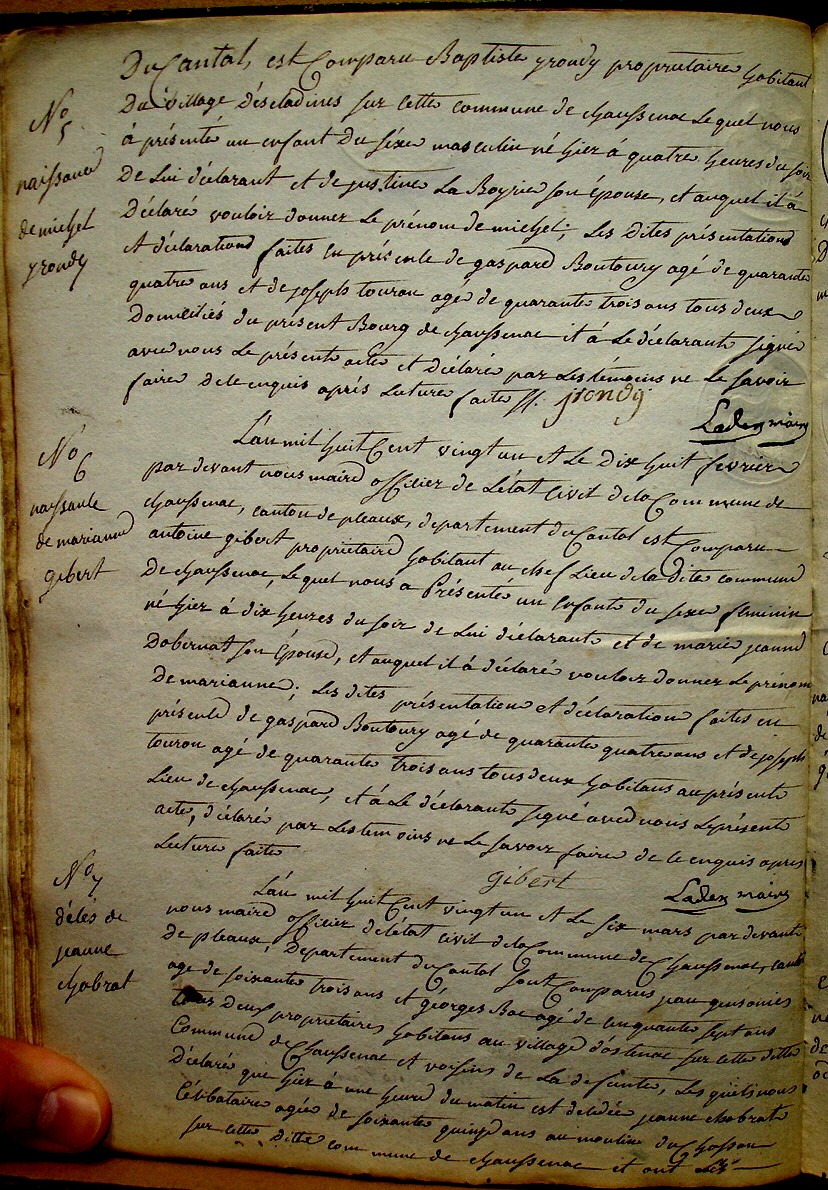 Du Cantal, est Comparu Baptiste yrondy proprietaire habitant
Du village D'escladines sur cette commune de chaussenac Lequel nous
à présenté un enfant Du séxe masculin né hier à quatre heures du soir
De Lui déclarant et de justine La Boyrie son épouse, et auquel il à
Déclaré vouloir donner Le prénom de michel; Les Dites présentation
et déclaration faites en présence de gaspard Boutoury agé de quarante
quatre ans et de joseph touron agé de quarante trois ans tous deux
Domiciliés du présent Bourg de chaussenac et à Le déclarant signé
avec nous Le présent acte et déclaré par Les témoins ne Le savoir
faire de ce enquis après Lecture faite ff. yrondy
Ladex maire
No 5
naissance
de michel
yrondy
L'an mil huit Cent vingt un et Le Dix huit fevrier
par devant nous maire officier de L'état Civil de la Commune de
chaussenac, canton de pleaux, departement du Cantal est Comparu
antoine gibert propriétaire habitant au chef Lieu de la Dite commune
De chaussenac, Lequel nous a Présenté un enfant du sexe feminin
né hier à dix heures du soir de Lui déclarant et de marie jeanne
Dobernat son épouse, et auquel il à déclaré vouloir donner Le prénom
De marianne; Les dites présentation et déclaration faites en
présence de gaspard Boutoury agé de quarante quatre ans et de joseph
touron agé de quarante trois ans tous deux habitans au présent
Lieu de chaussenac, et à Le déclarant signé avec nous Le présent
acte, déclaré par Les temoins ne Le savoir faire de ce enquis après
Lecture faite
gibert Ladex maire
No 6
naissance
de marianne
gibert
L'an mil huit Cent vingt un et Le six mars par devant
nous maire officier de L'état civil de la Commune de Chaussenac, canton
De pleaux, Departement du Cantal sont Comparus jean
agé de soixante trois ans et géorges Bac agé de cinquante sept ans
tous Deux propriétaires habitans au village d'ostenac sur cette ditte
Commune de Chaussenac et voisins de La defunte, Les quels nous
Déclaré que hier à une heure du matin est décédée jeanne chabrat
Célibataire agée de soixante quinze ans au moulin du
sur cette ditte commune de chaussenac et ont
No 7
décès de
jeanne
chabrat